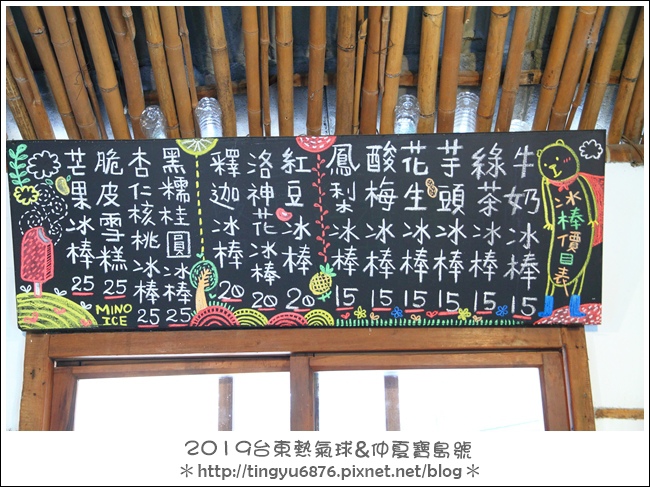 冰棒價目表
牛奶冰棒 15
綠茶冰棒 15
芋頭冰棒 15
花生冰棒 15
酸梅冰棒 15
鳳梨冰棒 15
紅豆冰棒 20
洛神花冰棒 20
釋迦冰棒 20
黑糯桂圓冰棒 25
杏仁核桃冰棒 25
脆皮雪糕 25
芒果冰棒 25
MINO
ICE
2019台東熱氣球&仲夏寶島號
＊http://tingyu6876.pixnet.net/blog＊